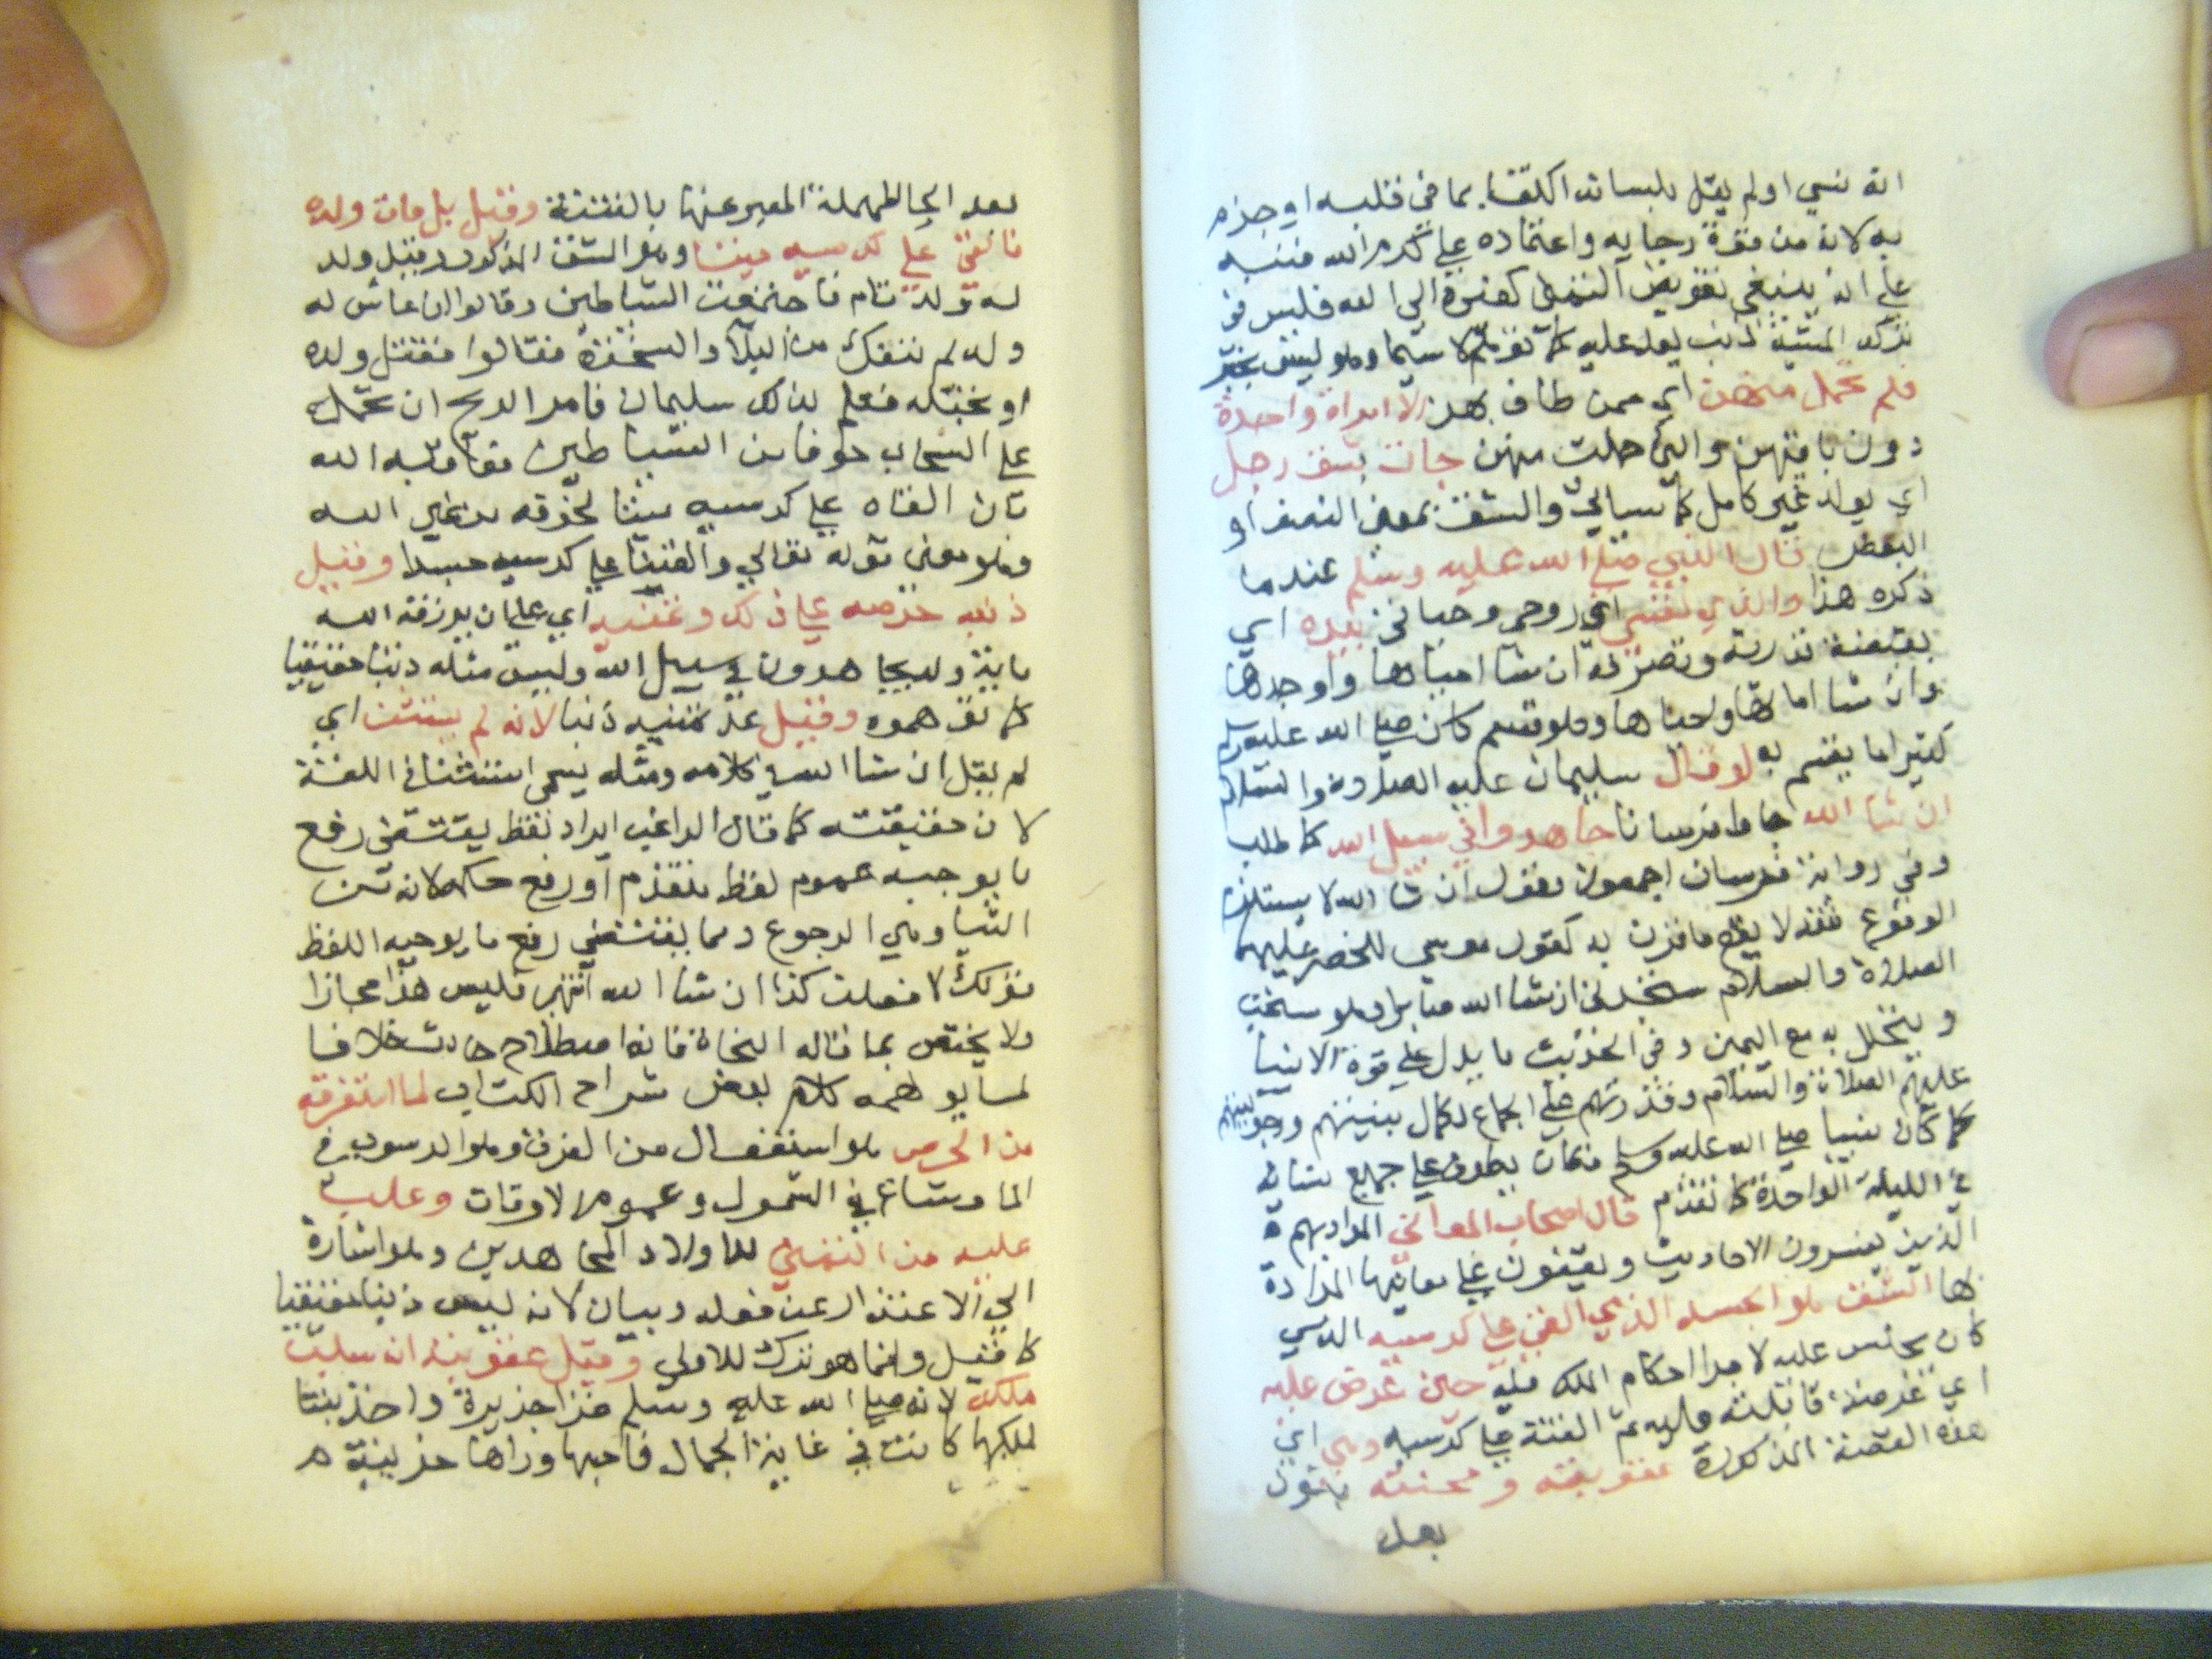 انه نسي او لم يقل بلسانه اكتفا بما في قلبه او جزم
به لانه من قوة رجايه واعتماده علي كرم الله فنبه
علي انه ينبغي تفويض التمني كغيره الي الله فليس في
تركه المشية ذنب يعد عليه كما توهم لا سيما وهو ليس بخبر
فلم تحمل منهن اي ممن طاف بهن الا امراة واحدة
دون باقيهن والتي حملت منهن جات بشق رجل
اي بولد غير كامل كما سياتي والشق بمعني النصف او
البعض قال النبي صلي الله عليه وسلم عندما
ذكره هذا والذي نفسي اي روحي وحياتي بيده اي
بقبضة قدرته وتصرفه ان شا ابقاها واوجدها
وان شا اماتها وافناها وهو قسم كان صلي الله عليه وسلم
كثيرا ما يقسم به لو قال سليمان عليه الصلاة والسلام
ان شا الله جاوا فرسانا جاهدوا في سبيل الله كما طلب
وفي رواية فرسان اجمعون وقول ان شا الله لا يستلزم
الوقوع فقد لا يقع ما قرن به كقول موسي للخضر عليهما
الصلاة والسلام ستجدني ان شا الله صابرا وهو مستحب
ويتحلل به مع اليمين وفي الحديث ما يدل علي قوة الانبيا
عليهم الصلاة والسلام وقدرتهم علي الجماع لكمال بنيتهم ورجوليتهم
كما كان نبينا صلي الله عليه وسلم فكان يطوف علي جميع نسايه
في الليلة الواحدة كما تقدم قال اصحاب المعاني المراد بهم
الذين يفسرون الاحاديث ويقفون علي معانيها المرادة
بها الشق هو الجسد الذي القي علي كرسيه الذي
كان يجلس عليه لاجرا احكام الملك فيه حين عرض عليه
اي عرضته قابلته عليه ثم القته علي كرسيه وهي اي
هذه القصة المذكورة عقوبته ومحنته بالنون
بعد
بعد الحا المهملة المعبر عنها بالفتنة وقيل بل مات ولده
فالقي علي كرسيه ميتا وهو الشق المذكور وقيل ولد
له ولد تام فاجتمعت الشياطين وقالوا ان عاش له
ولد لم ننفك من البلا والسخرة فقالوا نقتل ولده
او نخبله فعلم بذلك سليمان فامر الريح ان تحمله
علي السحاب خوفا من الشياطين فعاقبه الله
بان القاه علي كرسيه ميتا لخوفه من غير الله
وهو معني قوله تعالي والقينا علي كرسيه جسدا وقيل
ذنبه حرصه علي ذلك وتمنيه اي علي ان يرزقه الله
ماية ولد يجاهدون في سبيل الله وليس مثله ذنبا حقيقيا
كما توهموه وقيل عد تمنيه ذنبا لانه لم يستثن اي
لم يقل ان شا الله في كلامه ومثله يسمي استثنا في اللغة
لان حقيقته كما قال الراغب ايراد لفظ يقتضي رفع
ما يوجبه عموم لفظ متقدم او رفع حكمه لانه من
الثنيا وهي الرجوع ومما يقتضي رفع ما يوجبه اللفظ
قولك لا فعلت كذا ان شا الله انتهي فليس هذا مجازا
ولا يختص بما قاله النحاة فانه اصطلاح حادث خلافا
لما يوهمه كلام بعض شراح الكتاب لما استغرقه
من الحرص هو استفعال من الغرق وهو الرسوب في
الما وشاع في الشمول وعموم الاوقات وغلب
عليه من التمني للاولاد المجاهدين وهو اشارة
الي الاعتذار عن فعله وبيان لانه ليس ذنبا حقيقيا
كما قيل وانما هو ترك للاولي وقيل عقوبته ان سلب
ملكه لانه صلي الله عليه وسلم غزا جزيرة واخذ بنتا
لملكها كانت في غاية الجمال فاحبها وراها حزينة